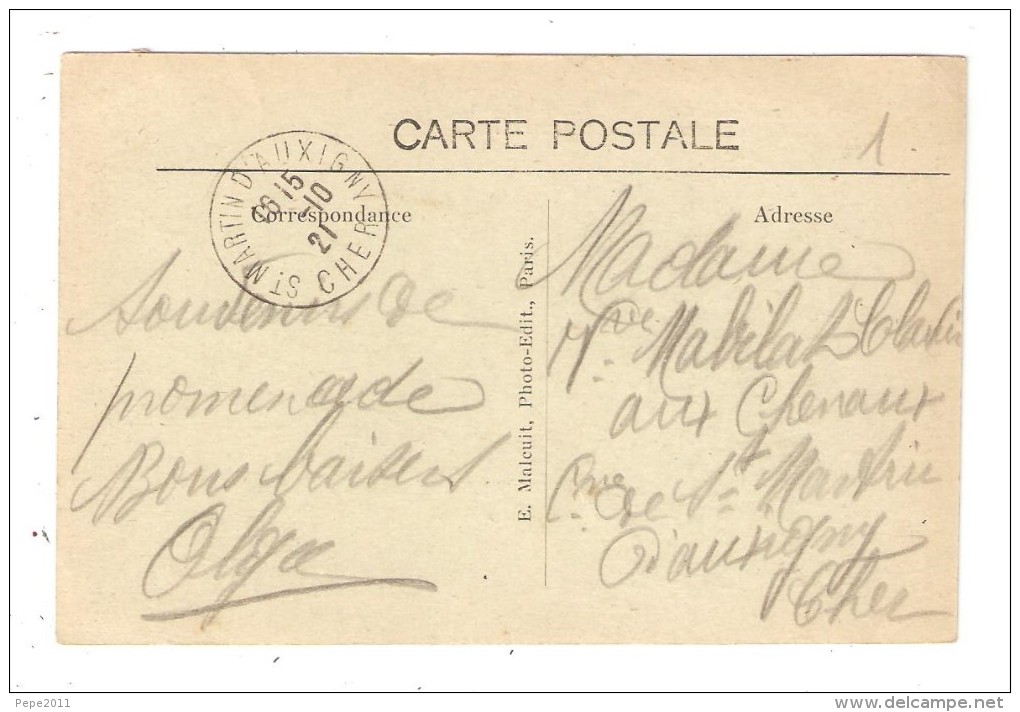 CARTE POSTALE
1
ST MARTIN D'AUXIGNY
15
21-10
CHER
Correspondance
Adresse
Souvenirs de
promenade
Bons baisers
Olga
E. Malcuit, Photo-Edit., Paris.
Madame
Vve Mabilat
aux Chenaux
Cne de St Martin
d'auxigny
Cher
Pepe2011
delcampe.net